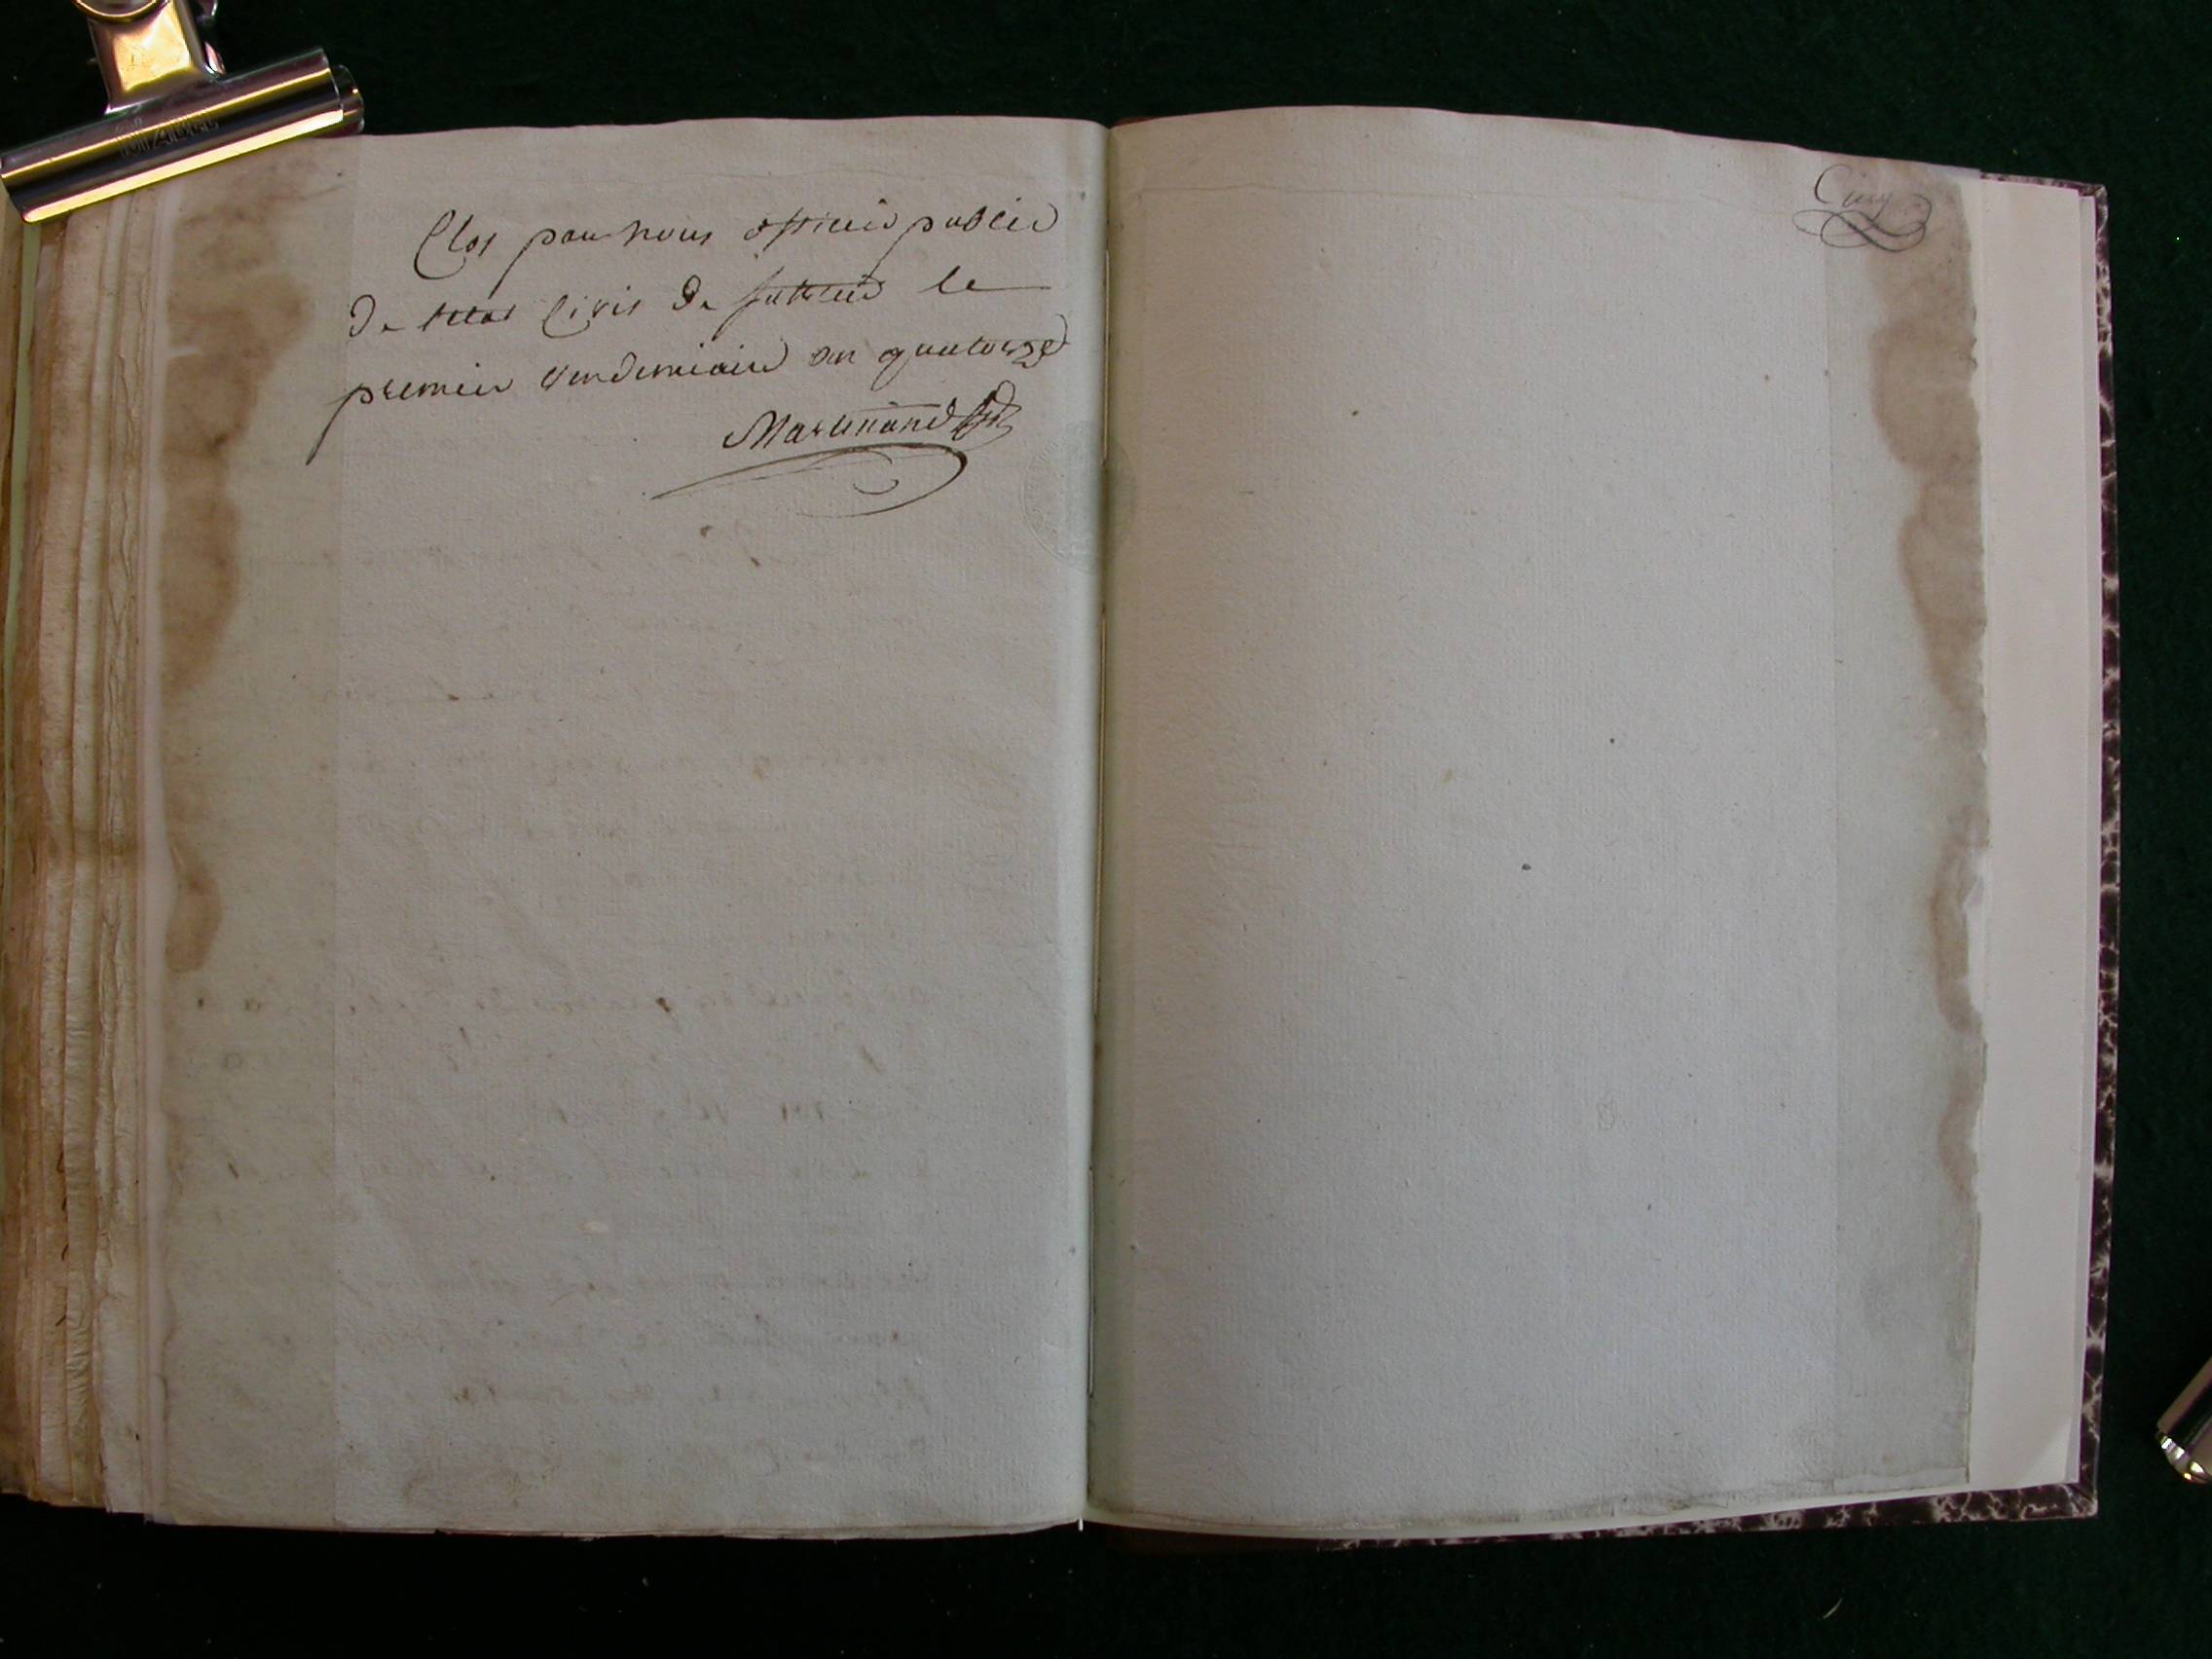 Clos par nous officier public
de letat Civil de le
premier vendemiaire an quatorze
Martinand
Cuzy